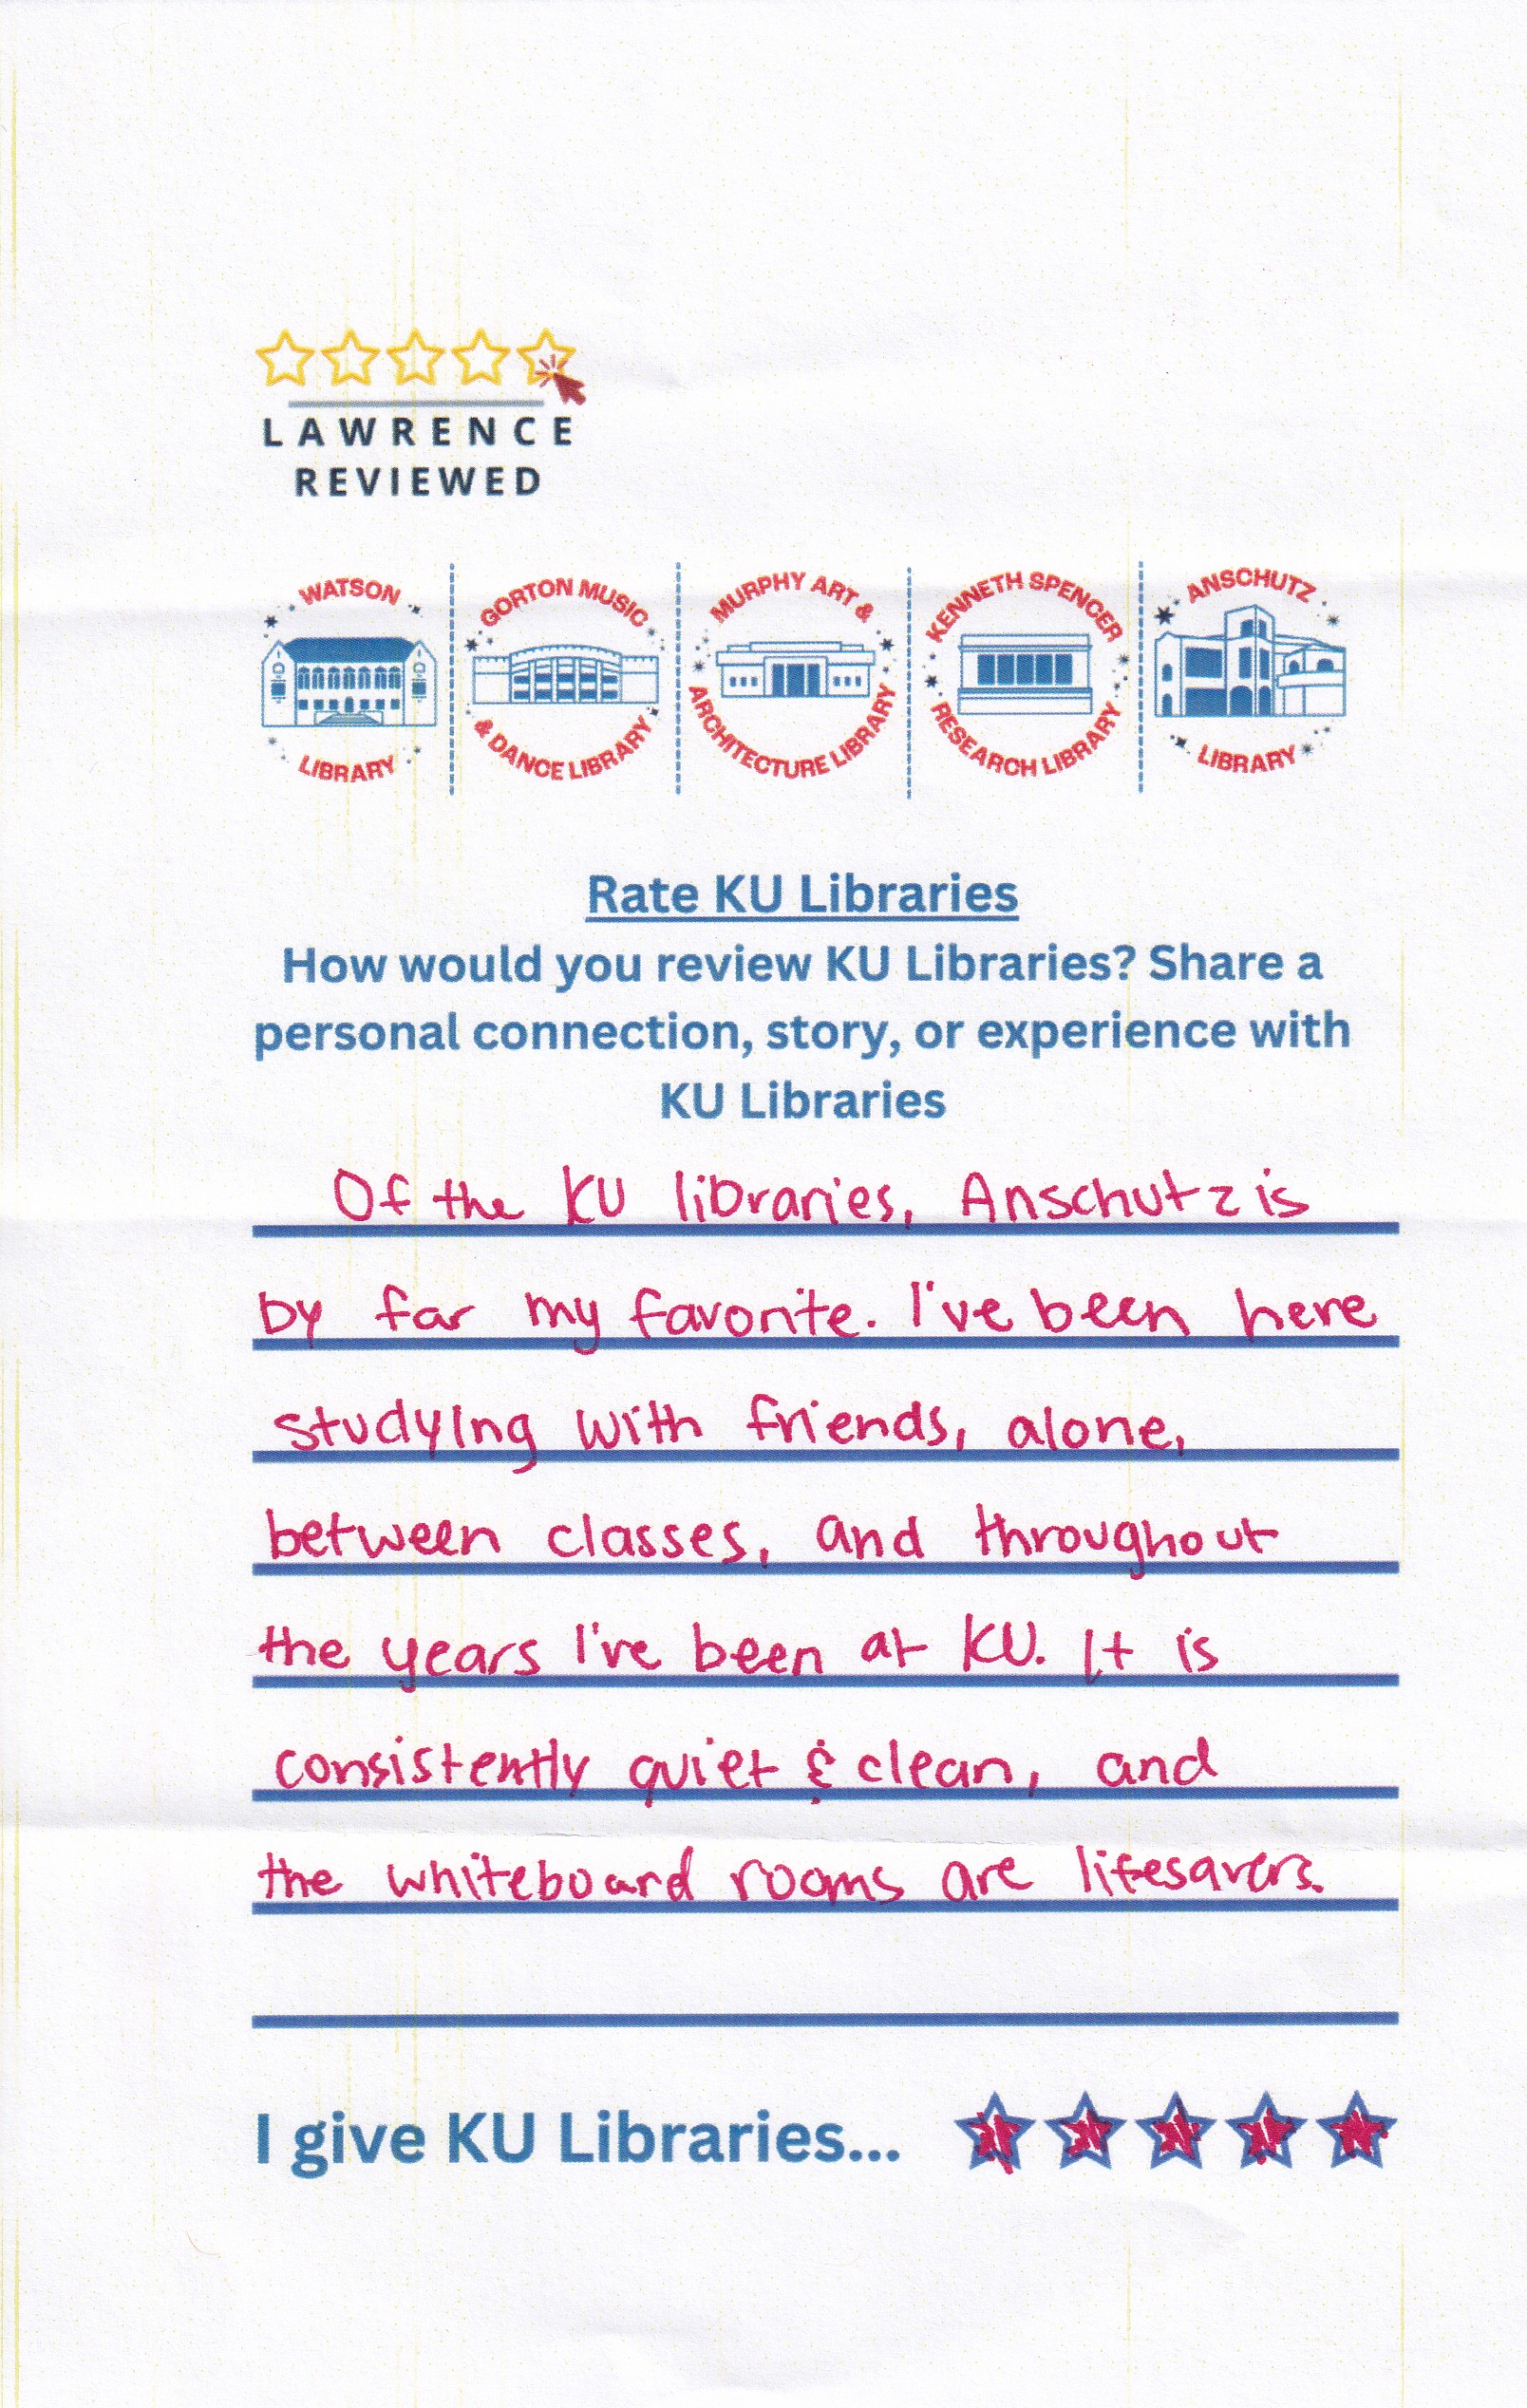 LAWRENCE
REVIEWED
WATSON
LIBRARY
GORTON MUSIC
& DANCE LIBRARY
MURPHY ART &
ARCHITECTURE LIBRARY
KENNETH SPENCER
RESEARCH LIBRARY
ANSCHUTZ
LIBRARY
Rate KU Libraries
How would you review KU Libraries? Share a
personal connection, story, or experience with
KU Libraries
Of the KU libraries, Anschutz is
by far my favorite. I've been here
studying with friends, alone,
between classes, and throughout
the years I've been at KU. It is
consistently quiet & clean, and
the whiteboard rooms are lifesavers.
I give KU Libraries...